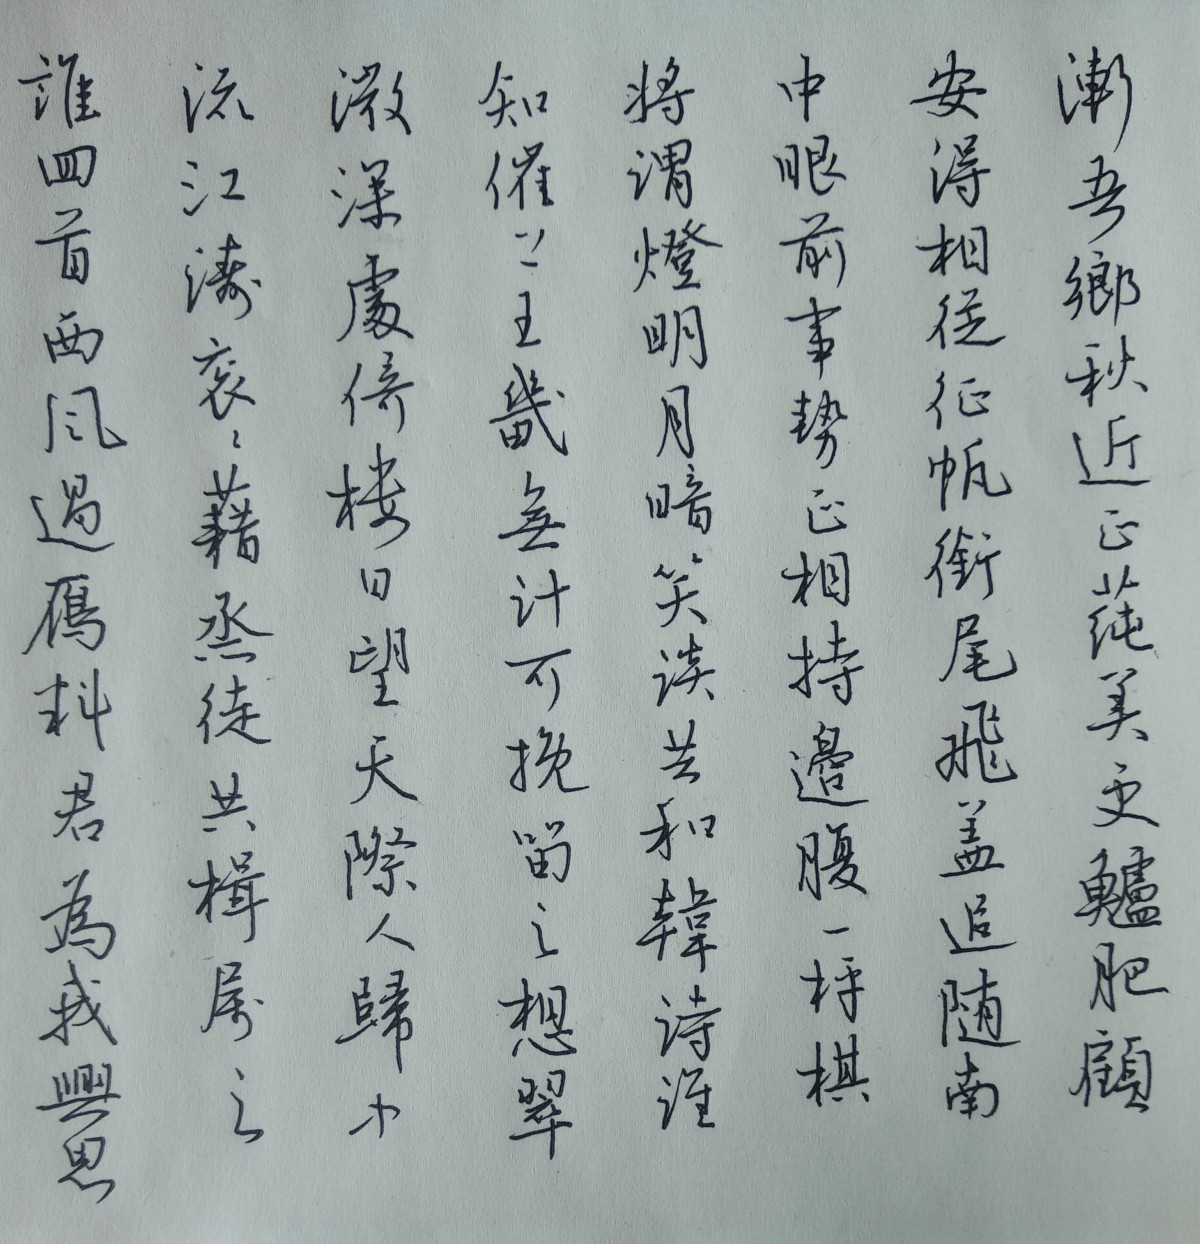 漸吾鄉秋近正蒓美更鱸肥顧
安得相從征帆銜尾飛蓋追随南
中眼前事勢正相持邊腹一枰棋
将謂燈明月暗笑談共和韓詩誰
知催上王畿無計可挽留之想翠
微深處倚楼日望天際人歸小
流江濤衮々藉烝徒共楫属之
誰四首西风過鴈料君為我興思